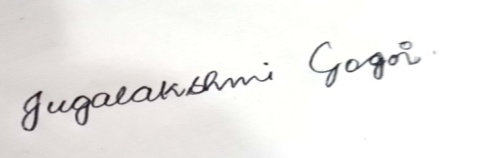 Jugalakshmi Gogoi.